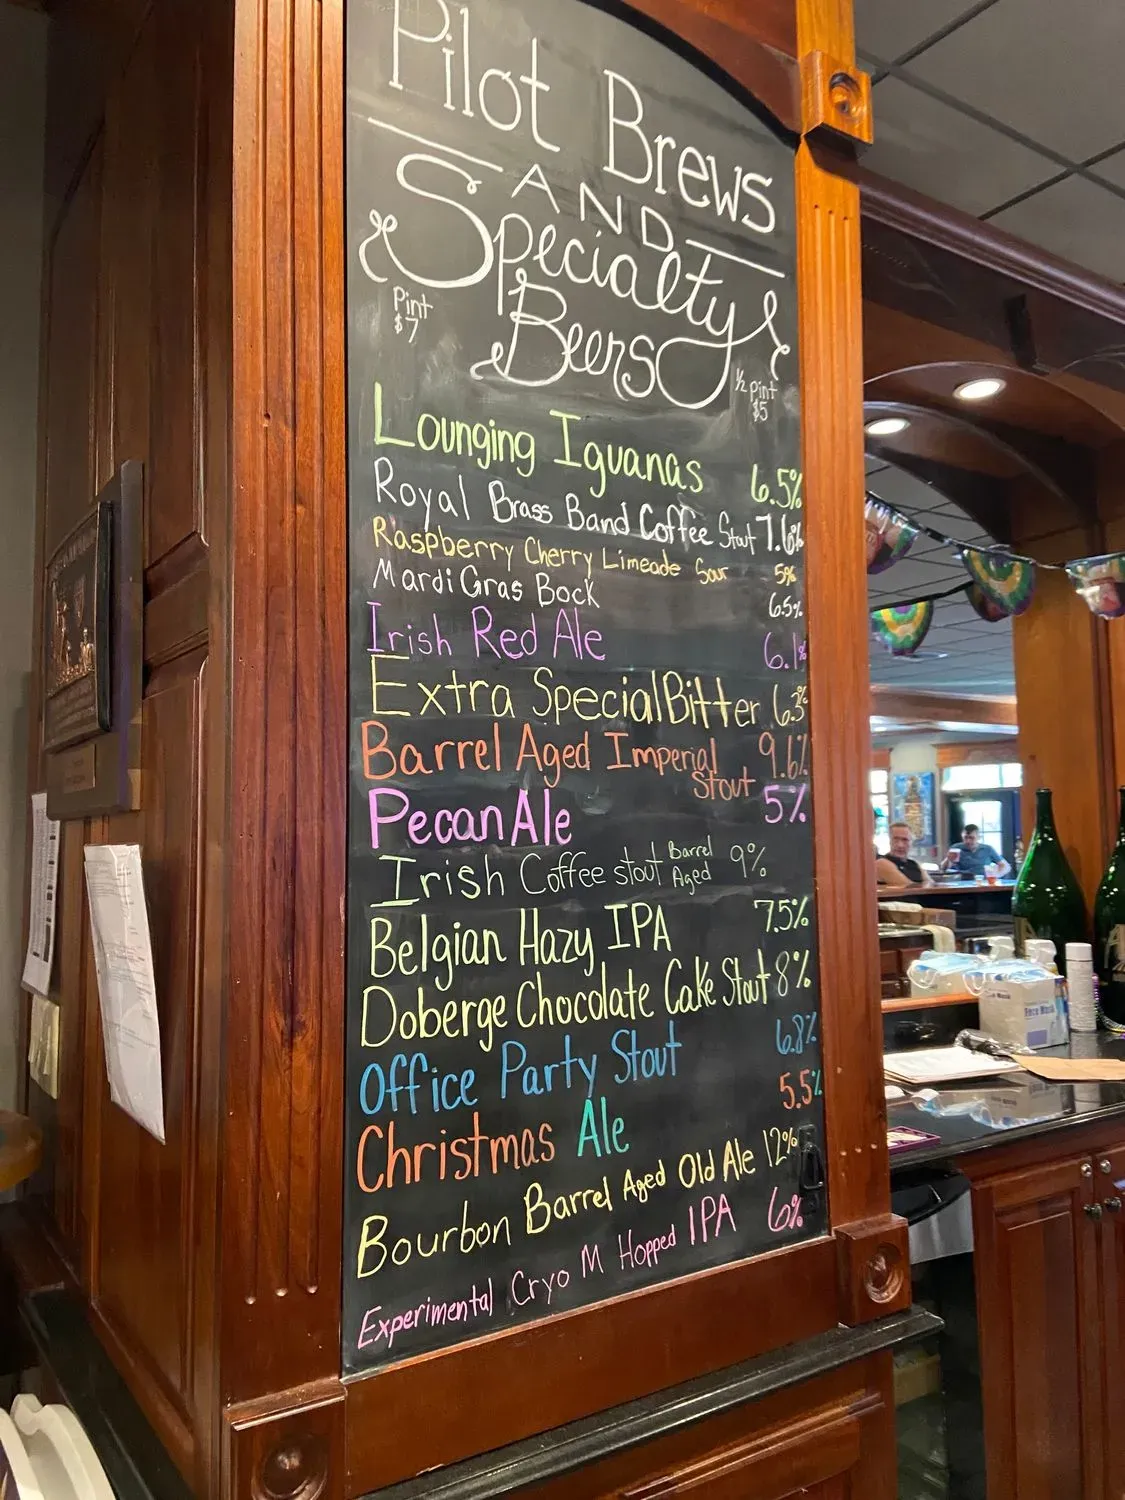 Pilot Brews
AND
Specialty
Beers
Pint
$7
½ pint
$5
Lounging Iguanas 6.5%
Royal Brass Band Coffee Stout 7.6%
Raspberry Cherry Limeade Sour 5%
Mardi Gras Bock 6.5%
Irish Red Ale 6.1%
Extra Special Bitter 6.3%
Barrel Aged Imperial Stout 9.6%
Pecan Ale 5%
Irish Coffee stout Barrel Aged 9%
Belgian Hazy IPA 7.5%
Doberge Chocolate Cake Stout 8%
Office Party Stout 6.8%
Christmas Ale 5.5%
Bourbon Barrel Aged Old Ale 12%
Experimental Cryo M Hopped IPA 6%
Face Mask